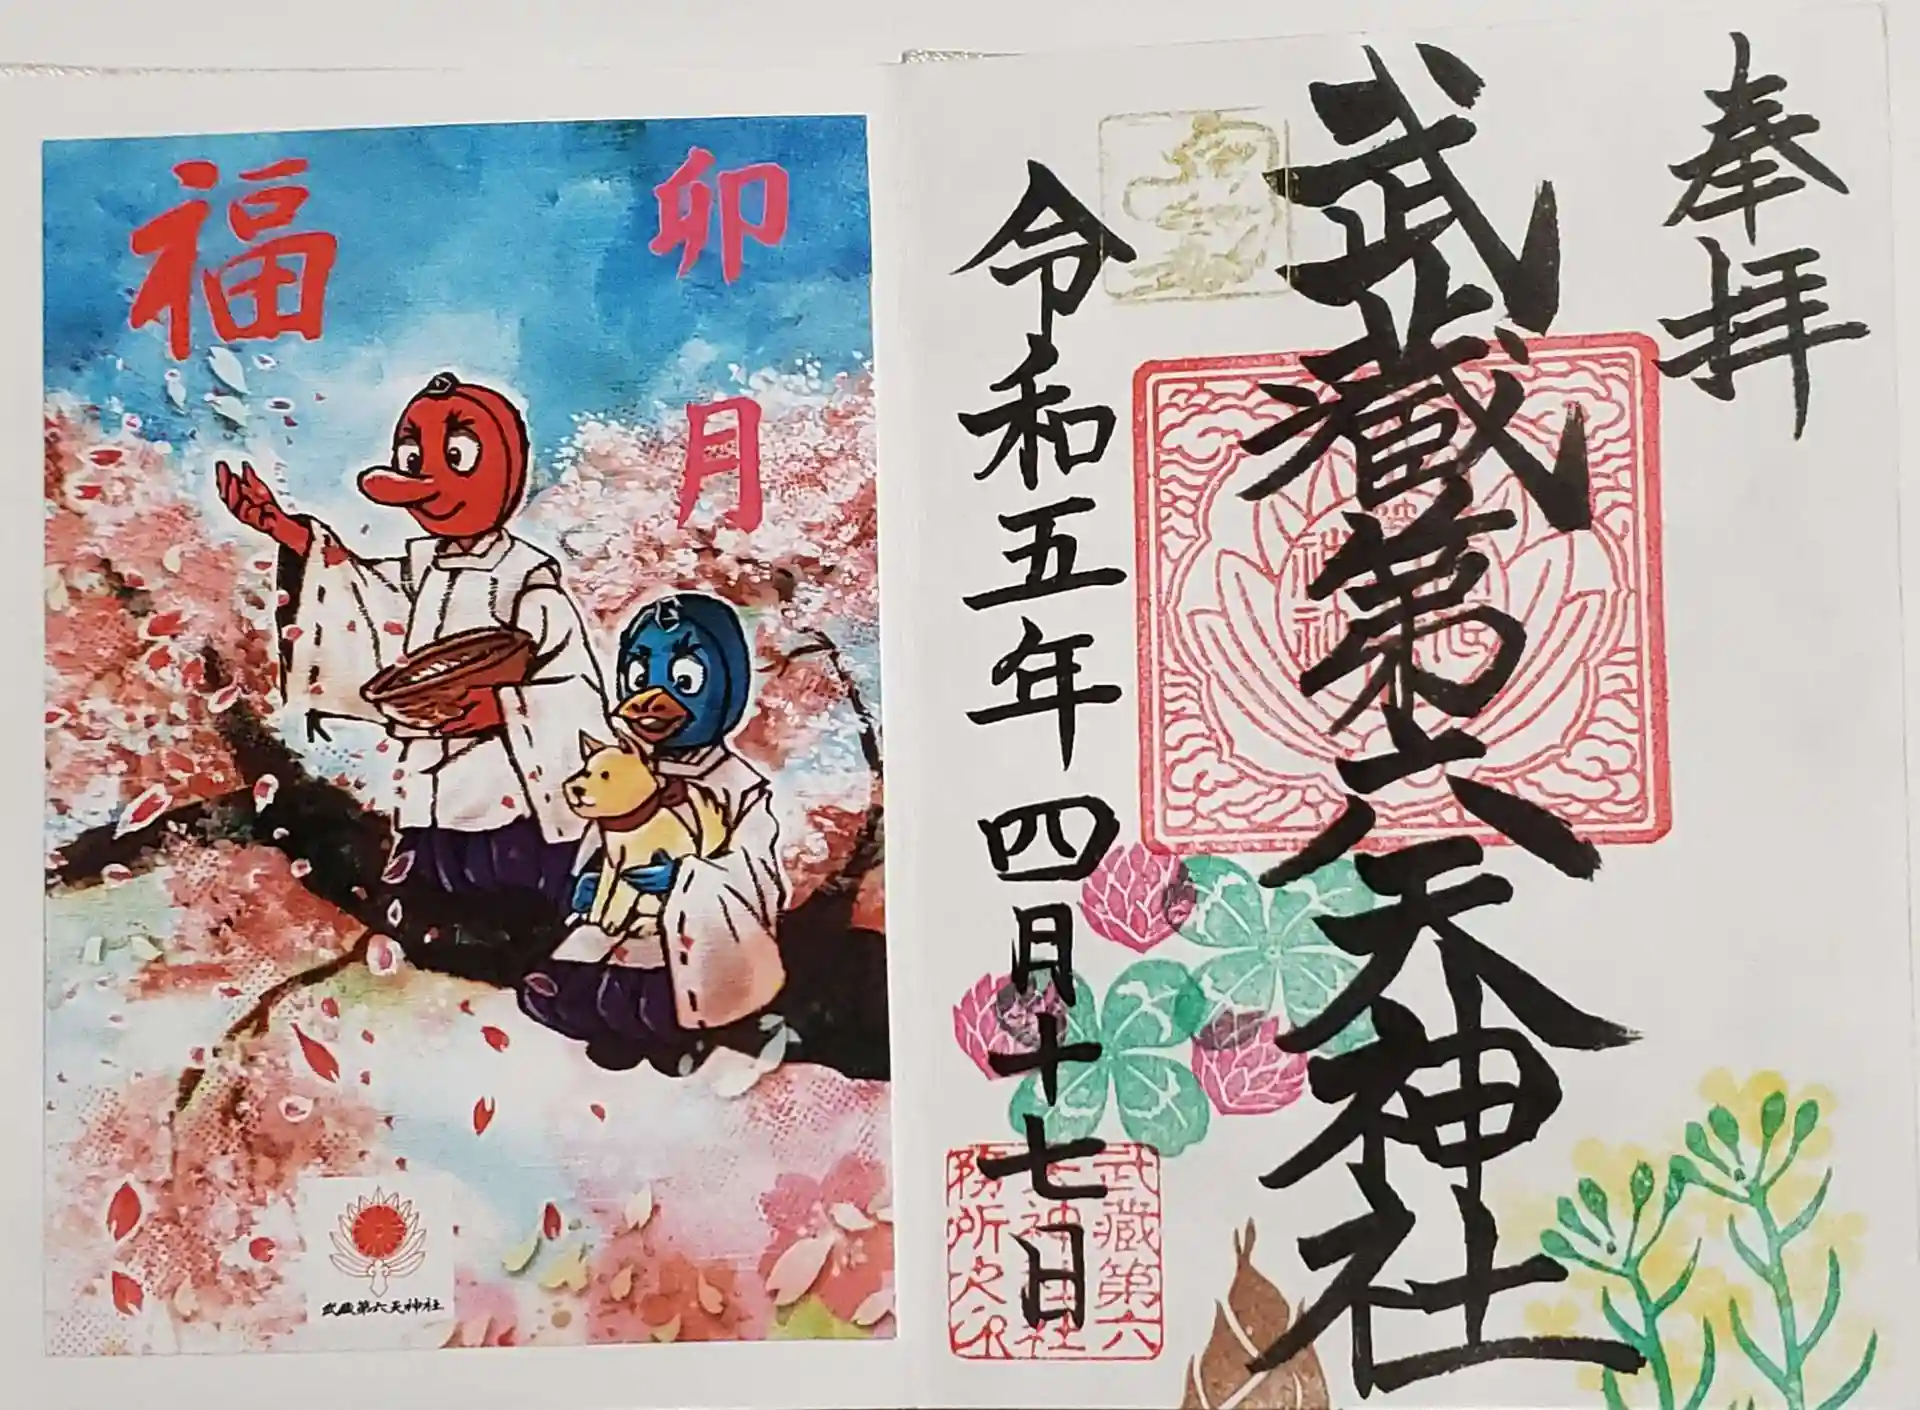 奉拝
武蔵第六天神社
令和五年四月十七日
武蔵第六
天神社社
務所之印
卯月
福
武蔵第六天神社